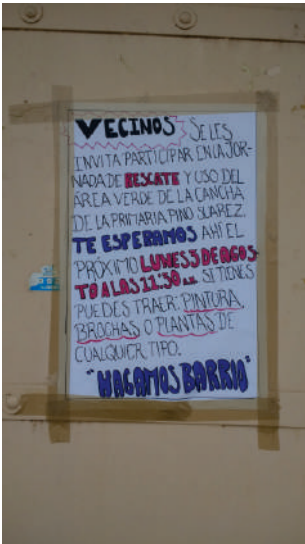 VECINOS SE LES
INVITA PARTICIPAR EN LA JOR-
NADA DE RESCATE Y USO DEL
ÁREA VERDE DE LA CANCHA
DE LA PRIMARIA PINO SUAREZ.
TE ESPERAMOS AHÍ EL
PRÓXIMO LUNES 5 DE AGOS-
TO A LAS 11:30 A.M. SI TIENES
PUEDES TRAER: PINTURA,
BROCHAS O PLANTAS DE
CUALQUIER TIPO.
"HAGAMOS BARRIO"